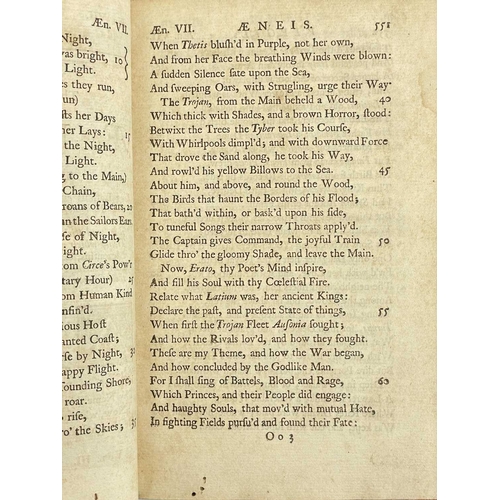 Æn. VII.
Night,
was bright, 10
Light.
es they run,
un)
sts her Days
her Lays: 15
the Night,
Light.
g to the Main,)
Chain,
roans of Bears, 20
an the Sailors Ears.
se of Night,
ight.
om Circe's Pow'r
tary Hour) 25
om Human Kind
nfin'd.
ious Host
anted Coast;
rse by Night, 30
appy Flight.
founding Shore,
roar.
o rise,
ro' the Skies; 35
Æn. VII. ÆNEIS. 551
When Thetis blush'd in Purple, not her own,
And from her Face the breathing Winds were blown:
A sudden Silence sate upon the Sea,
And sweeping Oars, with Strugling, urge their Way.
The Trojan, from the Main beheld a Wood, 40
Which thick with Shades, and a brown Horror, stood:
Betwixt the Trees the Tyber took his Course,
With Whirlpools dimpl'd; and with downward Force
That drove the Sand along, he took his Way,
And rowl'd his yellow Billows to the Sea. 45
About him, and above, and round the Wood,
The Birds that haunt the Borders of his Flood;
That bath'd within, or bask'd upon his side,
To tuneful Songs their narrow Throats apply'd.
The Captain gives Command, the joyful Train 50
Glide thro' the gloomy Shade, and leave the Main.
Now, Erato, thy Poet's Mind inspire,
And fill his Soul with thy Cœlestial Fire.
Relate what Latium was, her ancient Kings:
Declare the past, and present State of things, 55
When first the Trojan Fleet Ausonia sought;
And how the Rivals lov'd, and how they fought.
These are my Theme, and how the War began,
And how concluded by the Godlike Man.
For I shall sing of Battels, Blood and Rage, 60
Which Princes, and their People did engage:
And haughty Souls, that mov'd with mutual Hate,
In fighting Fields pursu'd and found their Fate:
Oo3